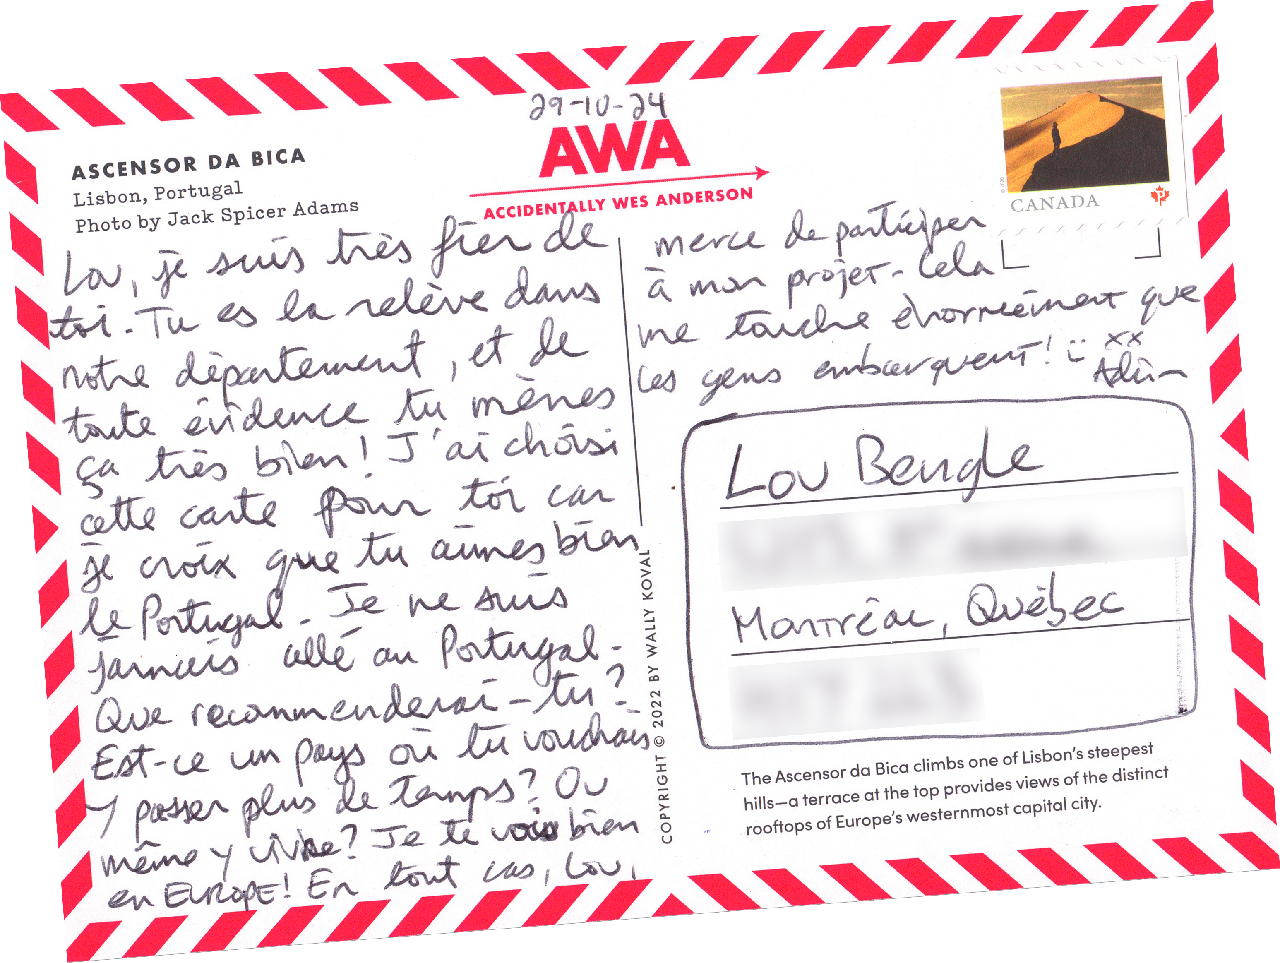 29-10-24
AWA
ACCIDENTALLY WES ANDERSON
ASCENSOR DA BICA
Lisbon, Portugal
Photo by Jack Spicer Adams
CANADA
P
Lou, je suis très fier de
toi. Tu es la relève dans
notre département, et de
toute évidence tu mènes
ça très bien! J'ai choisi
cette carte pour toi car
je crois que tu aimes bien
le Portugal. Je ne suis
jamais allé au Portugal.
Que recommenderai-tu?
Est-ce un pays où tu voudrais
y passer plus de temps? Ou
même y vivre? Je te vois bien
en EUROPE! En tout cas, Lou,
merce de participer
à mon projet. Cela
me touche énormément que
les gens embarquent! :) xx
Lou Beugle
Montréal, Québec
COPYRIGHT © 2022 BY WALLY KOVAL
The Ascensor da Bica climbs one of Lisbon's steepest
hills—a terrace at the top provides views of the distinct
rooftops of Europe's westernmost capital city.